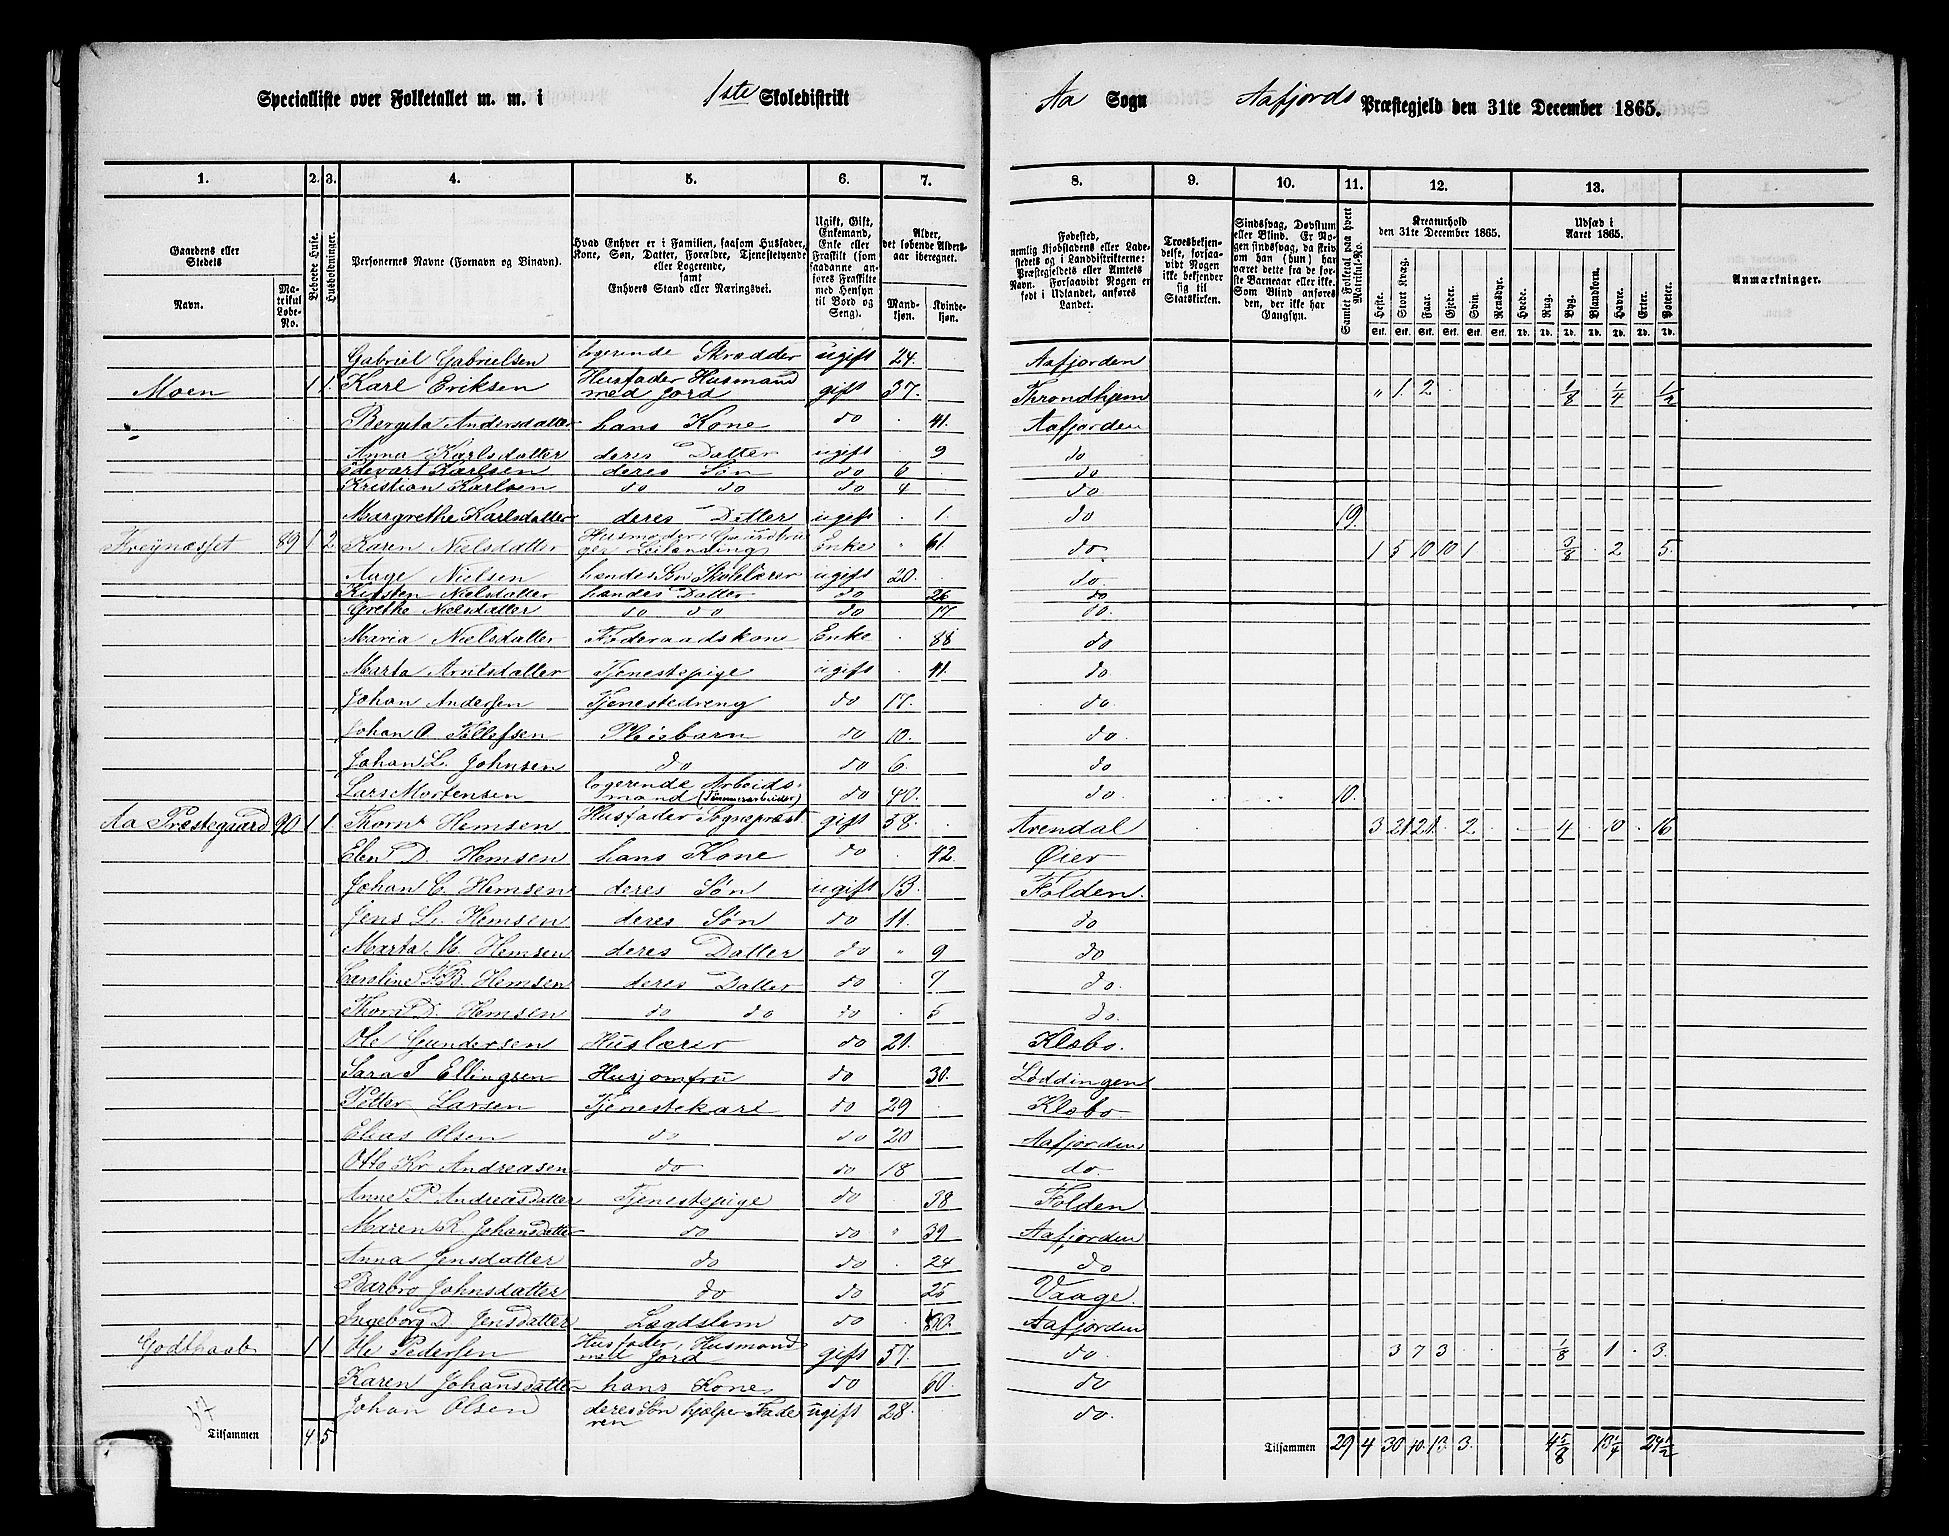 Specialliste over Folketallet m. m. i 1ste Skoledistrikt Aa Sogn Aafjords Præstegjeld den 31te December 1865.
1. 2. 3. 4. 5. 6. 7. 8. 9. 10. 11. 12. 13.
Gaardens eller Stedets
Navn. Matrikul Løbe-No.
Beboede Huse.
Husholdninger.
Personernes Navne (Fornavn og Binavn).
Hvad Enhver er i Familien, saasom Husfader, Kone, Søn, Datter, Forældre, Tjenestetyende eller Logerende, samt Enhvers Stand eller Næringsvei.
Ugift, Gift, Enkemand, Enke eller Fraskilt (som saadanne anføres Fraskilte med Hensyn til Bord og Seng).
Alder, det løbende Alders-aar iberegnet.
Mand-kjøn. Kvinde-kjøn.
Fødested, nemlig Kjøbstadens eller Ladestedets og i Landdistrikterne: Præstegjeldets eller Amtets Navn. Forsaavidt Nogen er født i Udlandet, anføres Landet.
Troesbekjendelse, forsaavidt Nogen ikke bekjender sig til Statskirken.
Sindssvag, Døvstum eller Blind. Er Nogen sindssvag, da skrives om han (hun) har været dette fra de første Barneaar eller ikke. Som Blind anføres den, der ikke har Gangsyn.
Samlet Folketal paa hvert Matrikul-No.
Kreaturhold den 31te December 1865.
Heste. Stort Kvæg. Faar. Gjeder. Svin. Rensdyr.
Udsæd i Aaret 1865.
Hvede. Rug. Byg. Blandkorn. Havre. Erter. Poteter.
Anmærkninger.
Gabriel Gabrielsen logerende Skrædder ugift 24. Aafjorden
Moen 1 1. Karl Eriksen Husfader Husmand med Jord gift 37. Throndhjem " 1. 2 1/8 1/4 1/2
Bergita Andersdatter hans Kone do 41. Aafjorden
Anna Karlsdatter deres Datter ugift 9 do
Edevart Karlsen deres Søn do 6 do
Kristian Karlsen do do do 4 do
Margrethe Karlsdatter deres Datter ugift 1. do 19
89 1 2 Karen Nielsdatter Husmoder, Gaardbruger Leilending Enke " 61. do 1 5 10 10 1 3/8 2 5.
Aage Nielsen hendes Søn Skolelærer ugift 20. do
Kirsten Nielsdatter hendes Datter do 26 do
Grethe Nielsdatter do do do 17 do.
Maria Nielsdatter Føderaadskone Enke 88 do
Marta Arntsdatter Tjenestepige ugift 41. do
Johan Andersen Tjenestedreng do 17. do.
Johan O. Tøllefsen Pleiebarn do 10. do.
Johan L. Johnsen do do 6. do
Lars Mortensen logerende Arbeidsmand (Tømmerarbeider) do 40. do. 10.
Aa Præstegaard 90 1 1 Thorn Hemsen Husfader Sognepræst gift 38. Arendal 3 21 21. 2. 4 10 16
Elen D. Hemsen hans Kone do 42. Øier
Johan C. Hemsen deres Søn ugift 13. Folden.
Jens L. Hemsen deres Søn do 11. do
Marta M. Hemsen deres Datter do " 9 do
Caroline F.B. Hemsen deres Datter do 7 do.
D. Hemsen do do do 5 do.
Ole Gundersen Huslærer do 21. Klæbo.
Sara J Ellingsen Husjomfru do 30. Løddingen
Petter Larsen Tjenestekarl do 29 Klæbo
Elias Olsen do do 20 Aafjorden
Otto Kr Andreasen do do 18 do.
Anne P. Andreasdatter Tjenestepige do 38 Folden
Maren K. Johansdatter do do " 39 Aafjorden
Anna Jensdatter do do 24 do
Barbro Johnsdatter do do 25 Vaage.
Ingeborg D. Jensdatter Lægdslem do Aafjorden
Godthaab 1 1 Ole Pedersen Husfader, Husmand med Jord gift 57. do. 3 7 3 1/8 1 3.
Karen Johansdatter hans Kone do 60. do
Johan Olsen deres Søn hjælper Faderen ugift 28. do.
Tilsammen 4 5 Tilsammen 29 4 30 40. 13. 3. 4 5/8 13 1/4 24 1/2